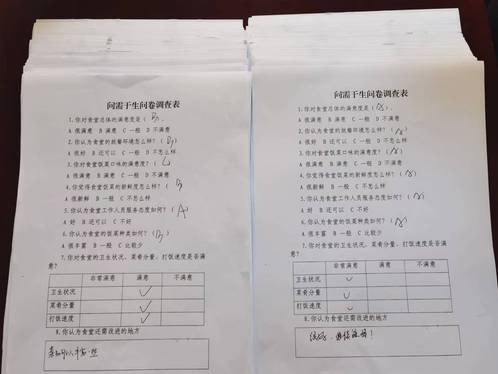 问需于生问卷调查表
1.你对食堂总体的满意度是（B）.
A 很满意 B 满意 C 一般 D 不满意
2.你认为食堂的就餐环境怎么样?（B）
A 很好 B 还可以 C 一般 D 不满意
3.你对食堂饭菜口味的满意度?（C）
A 很满意 B 满意 C 一般 D 不满意
4.你觉得食堂饭菜的新鲜度怎么样?（B
A 很新鲜 B 一般 C 不怎么样
5.你认为食堂工作人员服务态度如何?（A）
A 好 B 还可以 C 不好
6.你认为食堂的饭菜种类如何?（B）
A 很丰富 B 一般 C 比较少
7.你对食堂的卫生状况、菜肴分量、打饭速度是否满
意?
非常满意 满意 不满意
卫生状况 ✓
菜肴分量 ✓
打饭速度 ✓
8.你认为食堂还需改进的地方
问需于生问卷调查表
1.你对食堂总体的满意度是（A）.
A 很满意 B 满意 C 一般 D 不满意
2.你认为食堂的就餐环境怎么样?（A）
A 很好 B 还可以 C 一般 D 不满意
3.你对食堂饭菜口味的满意度?（A）
A 很满意 B 满意 C 一般 D 不满意
4.你觉得食堂饭菜的新鲜度怎么样?（A）
A 很新鲜 B 一般 C 不怎么样
5.你认为食堂工作人员服务态度如何?（A）
A 好 B 还可以 C 不好
6.你认为食堂的饭菜种类如何?（A）
A 很丰富 B 一般 C 比较少
7.你对食堂的卫生状况、菜肴分量、打饭速度是否满
意?
非常满意 满意 不满意
卫生状况 ✓
菜肴分量 ✓
打饭速度 ✓
8.你认为食堂还需改进的地方